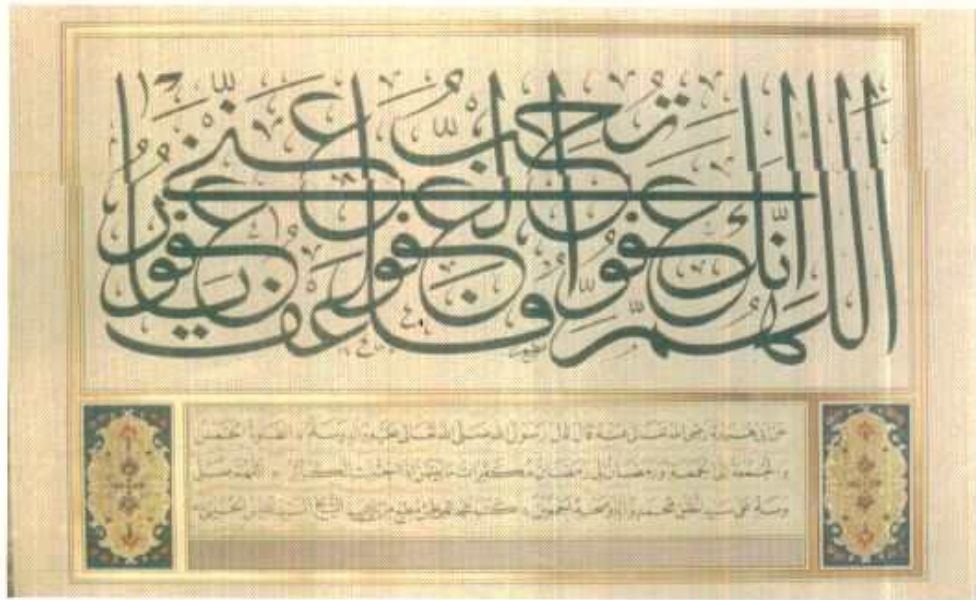 اللّهمّ انّك عفوّ تحبّ العفو فاعف عنّي
عن ابي هريرة رضي الله تعالى عنه قال قال رسول الله صلى الله تعالى عليه وآله وسلم الصلوات الخمس
والجمعة الى الجمعة ورمضان الى رمضان مكفرات ما بينهن اذا اجتنبت الكبائر اللهم صل
وسلم على سيد الخلق محمد وآله وصحبه اجمعين كتبه محمد الشيخ السيد